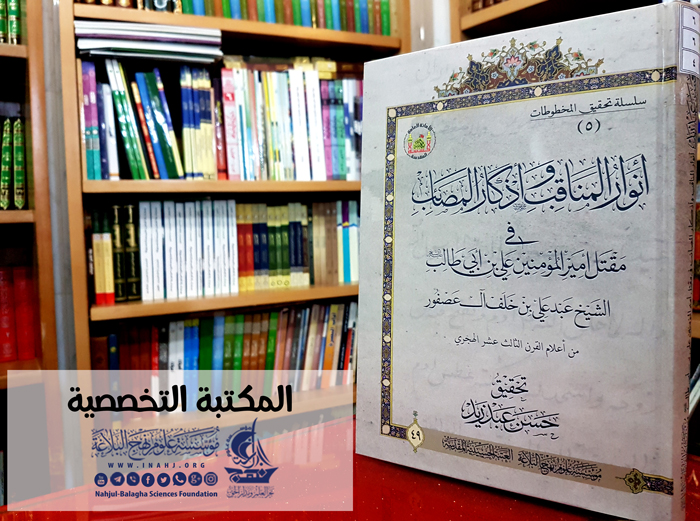 سلسلة تحقيق المخطوطات
(٥)
أنوار المناقب وأذكار المصائب
في
مقتل أمير المؤمنين علي بن أبي طالب
الشيخ عبد علي بن خلف آل عصفور
من أعلام القرن الثالث عشر الهجري
تحقيق
حسين عبد زيد
٤٩
مؤسسة علوم نهج البلاغة
العتبة الحسينية المقدسة
المكتبة التخصصية
مؤسسة علوم نهج البلاغة
WWW.INAHJ.ORG
Nahjul-Balagha Sciences Foundation